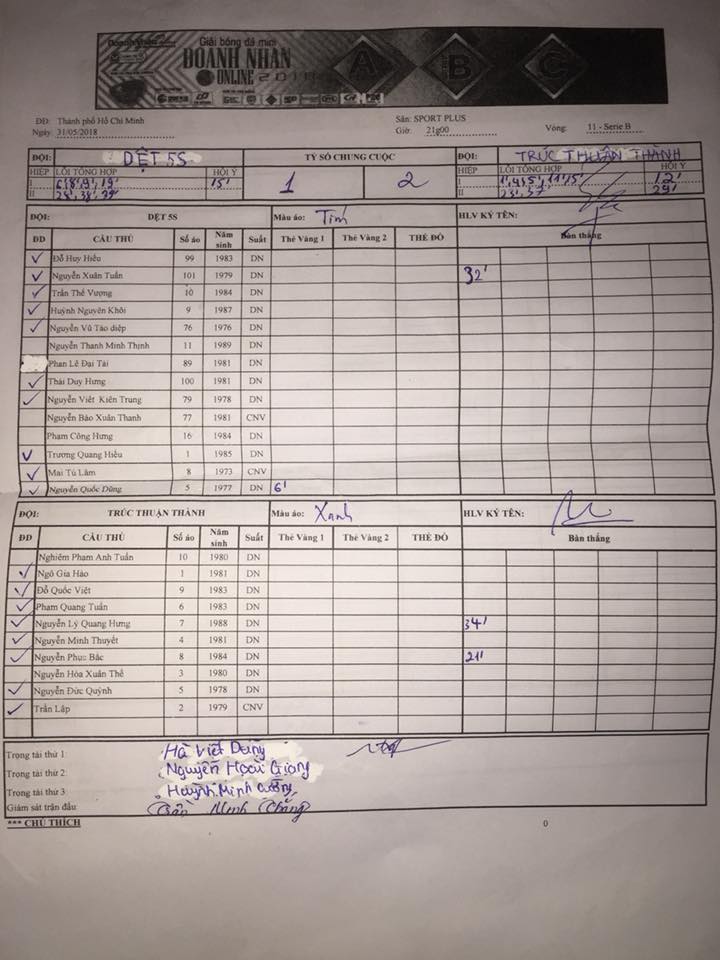 Giải bóng đá mini
DOANH NHÂN
ONLINE 2018
A B C
ĐĐ: Thành phố Hồ Chí Minh Sân: SPORT PLUS
Ngày: 31/05/2018 Giờ: 21g00 Vòng: 11 - Serie B
ĐỘI: DỆT 5S TỶ SỐ CHUNG CUỘC ĐỘI: TRÚC THUẬN THÀNH
HIỆP LỖI TỔNG HỢP HỘI Ý 1 2 HIỆP LỖI TỔNG HỢP HỘI Ý
I 15' I 12'
II II 23', 37' 29'
ĐỘI: DỆT 5S Màu áo: Tím HLV KÝ TÊN:
ĐD CẦU THỦ Số áo Năm sinh Suất Thẻ Vàng 1 Thẻ Vàng 2 THẺ ĐỎ Bàn thắng
✓ Đỗ Huy Hiếu 99 1983 DN
✓ Nguyễn Xuân Tuấn 101 1979 DN 32'
✓ Trần Thế Vượng 10 1984 DN
✓ Huỳnh Nguyên Khôi 9 1987 DN
✓ Nguyễn Vũ Tào diệp 76 1976 DN
Nguyễn Thanh Minh Thịnh 11 1989 DN
Phan Lê Đại Tài 89 1981 DN
✓ Thái Duy Hưng 100 1981 DN
✓ Nguyễn Viết Kiên Trung 79 1978 DN
Nguyễn Bảo Xuân Thanh 77 1981 CNV
Phạm Công Hưng 16 1984 DN
✓ Trương Quang Hiếu 1 1985 DN
✓ Mai Tú Lâm 8 1973 CNV
✓ Nguyễn Quốc Dũng 5 1977 DN 6'
ĐỘI: TRÚC THUẬN THÀNH Màu áo: Xanh HLV KÝ TÊN:
ĐD CẦU THỦ Số áo Năm sinh Suất Thẻ Vàng 1 Thẻ Vàng 2 THẺ ĐỎ Bàn thắng
Nghiêm Phạm Anh Tuấn 10 1980 DN
✓ Ngô Gia Hào 1 1981 DN
✓ Đỗ Quốc Việt 9 1983 DN
✓ Phạm Quang Tuấn 6 1983 DN
✓ Nguyễn Lý Quang Hưng 7 1988 DN 34'
✓ Nguyễn Minh Thuyết 4 1981 DN
✓ Nguyễn Phục Bắc 8 1984 DN 21'
Nguyễn Hòa Xuân Thế 3 1980 DN
✓ Nguyễn Đức Quỳnh 5 1978 DN
✓ Trần Lập 2 1979 CNV
Trọng tài thứ 1: Hà Việt Dũng
Trọng tài thứ 2: Nguyễn Hoài Giang
Trọng tài thứ 3: Huỳnh Minh Cường
Giám sát trận đấu: Minh
*** CHÚ THÍCH 0